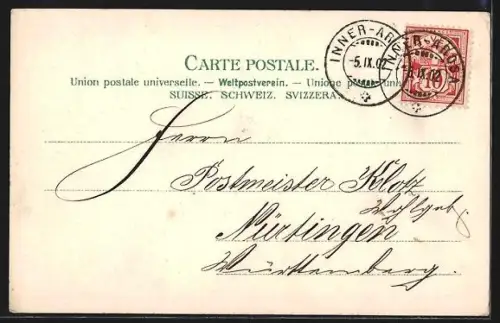 CARTE POSTALE.
Union postale universelle. — Weltpostverein. — Unione postale un
SUISSE. SCHWEIZ. SVIZZERA.
INNER-AR
-5.IX.02
INNER-AROSA
-5.IX.02
10
Herrn
Postmeister Klotz
Wohlgeb.
Nürtingen
Württemberg.